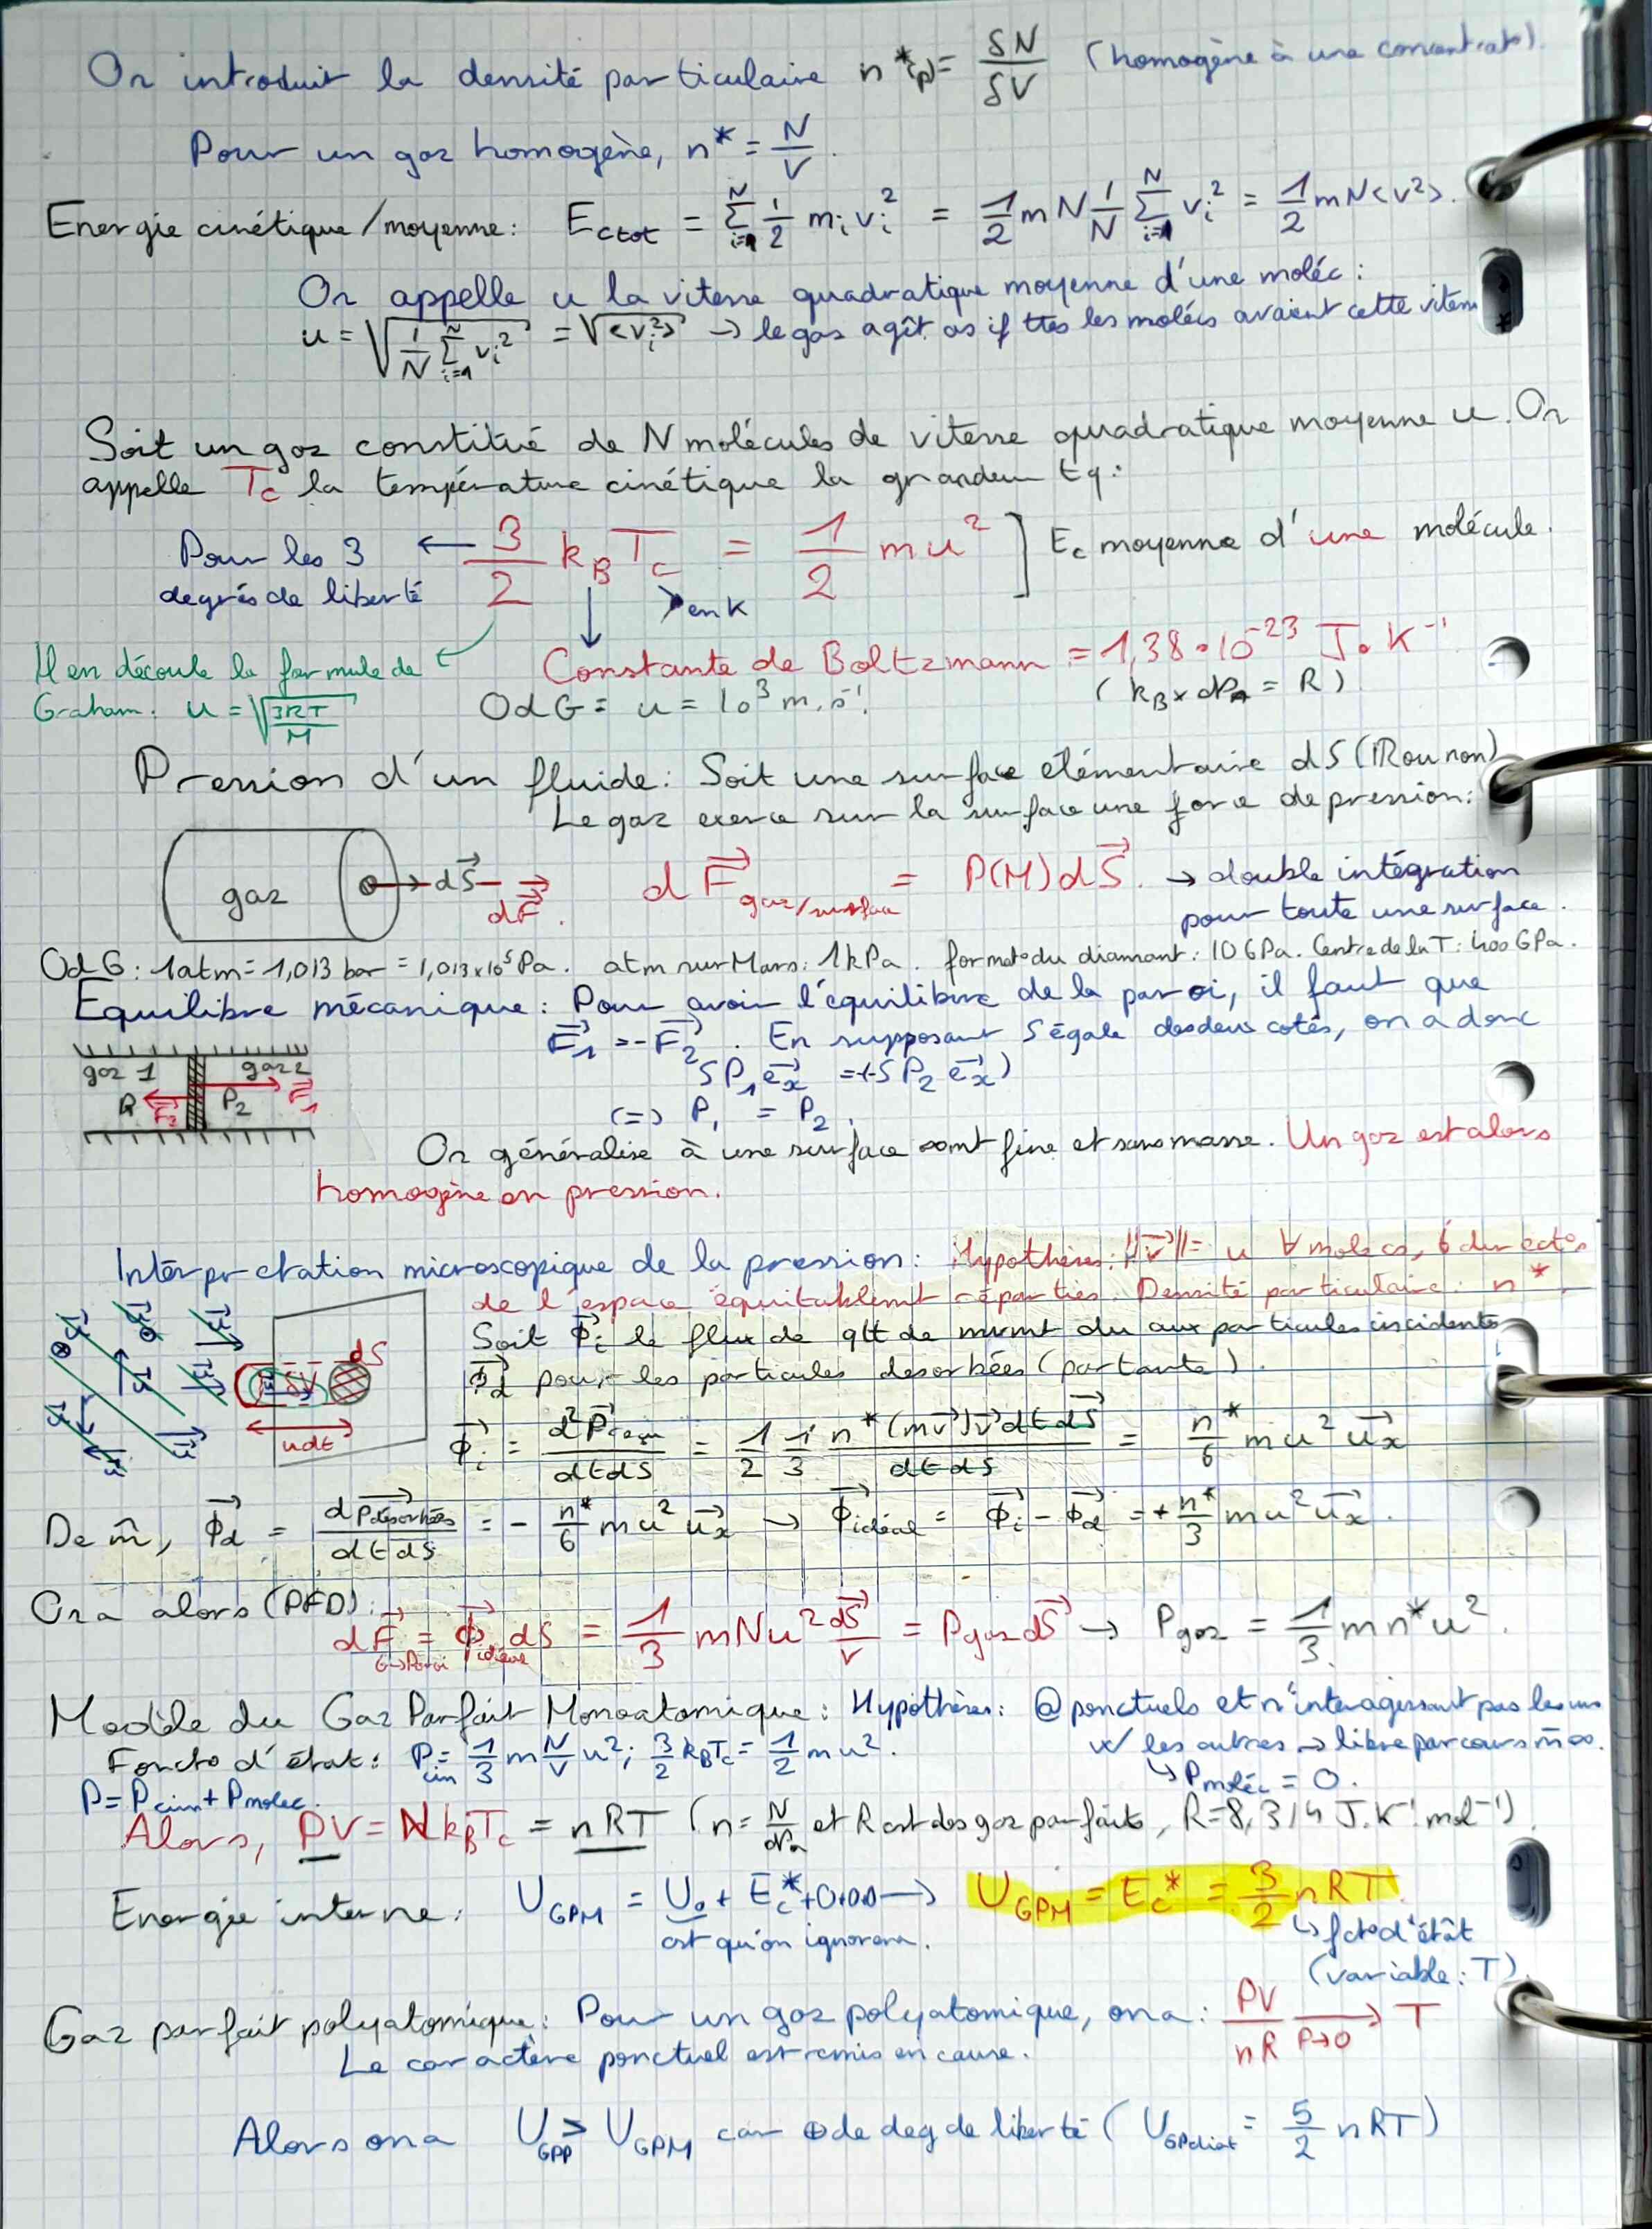 On introduit la densité particulaire n*(p) = δN/δV (homogène à une concentrat°).
Pour un gaz homogène, n* = N/V.
Energie cinétique/moyenne : Ectot = Σ_{i=1}^{N} 1/2 m_i v_i² = 1/2 m N 1/N Σ_{i=1}^{N} v_i² = 1/2 m N <v²>.
On appelle u la vitesse quadratique moyenne d'une moléc :
u = √(1/N Σ_{i=1}^{N} v_i²) = √<v_i²> → le gas agît as if ttes les molécs avaient cette vitesse
Soit un gaz constitué de N molécules de vitesse quadratique moyenne u. On
appelle Tc la température cinétique la grandeur tq :
Pour les 3 degrés de liberté ← 3/2 k_B Tc = 1/2 m u² ] Ec moyenne d'une molécule.
en K
Il en découle la formule de Graham : u = √(3RT/M)
Constante de Boltzmann = 1,38 • 10^-23 J • K^-1
(k_B × 𝒩_A = R)
OdG = u = 10³ m.s^-1.
Pression d'un fluide : Soit une surface élémentaire dS (IR ou non)
Le gaz exerce sur la surface une force de pression :
gaz dS→ dF→
dF→ gaz/surface = P(M) dS→. → double intégration
pour toute une surface.
OdG : 1atm = 1,013 bar = 1,013×10⁵ Pa. atm sur Mars : 1kPa. format° du diamant : 10 GPa. Centre de la T : 400 GPa.
Equilibre mécanique : Pour avoir l'équilibre de la paroi, il faut que
F1→ = -F2→. En supposant S égale des deux cotés, on a donc
gaz 1 gaz 2
S P1 ex→ = -(-S P2 ex→)
P1 F2→ P2 F1→
(=) P1 = P2.
On généralise à une surface fine et sans masse. Un gaz est alors
homogène en pression.
Intérprétation microscopique de la pression : Hypothèses : ||v→|| = u ∀ molécs, 6 direct°
de l'espace équitablemt réparties. Densité particulaire : n*.
Soit Φi→ le flux de qtt de mvmt du aux particules incidentes
Φd→ pour les particules desorbées (partante).
u→ δV dS
udt
Φi→ = d²P→/dtdS = 1/2 1/3 n*(mv→)v→dtdS→/dtdS = n*/6 m u² ux→
De m̂, Φd→ = dP→désorbées/dtdS = - n*/6 m u² ux→ → Φidéal→ = Φi→ - Φd→ = + n*/3 m u² ux→.
On a alors (PFD) :
dF→ G→Paroi = Φ→idéal dS = 1/3 m N u² dS→/V = Pgaz dS→ → Pgaz = 1/3 m n* u².
Modèle du Gaz Parfait Monoatomique : Hypothèses : @ ponctuels et n'interagissant pas les uns
w/ les autres → libre parcours m̄ ∞.
Foncto d'état : Pcin = 1/3 m N/V u² ; 3/2 k_B Tc = 1/2 m u².
↳ Pmoléc = 0.
P = Pcin + Pmolec.
Alors, PV = N k_B Tc = nRT (n = N/𝒩a et R cst des gaz parfaits, R = 8,314 J.K^-1.mol^-1)
Energie interne : U_GPM = U0 + Ec* + 0+0+0 → U_GPM = Ec* = 3/2 nRT.
cst qu'on ignorera.
↳ fct° d'état
(variable : T)
Gaz parfait polyatomique : Pour un gaz polyatomique, on a : PV/nR →(P→0) T
Le caractère ponctuel est remis en cause.
Alors on a U_GPP ≥ U_GPM car ⊕ de deg de liberté (U_GPdiat = 5/2 nRT)